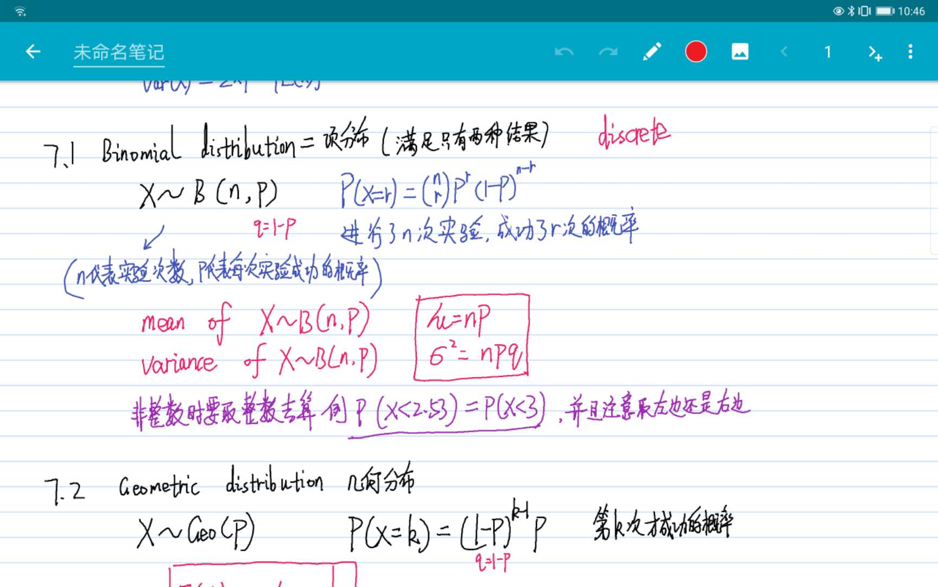 10:46
未命名笔记
1
7.1 Binomial distribution = 项分布 (满足只有两种结果) discrete
X~B(n,P) P(X=r)=(n r)P^r(1-P)^n-r
q=1-P 进行了n次实验,成功了r次的概率
(n代表实验次数,P代表每次实验成功的概率)
mean of X~B(n,P) μ=nP
variance of X~B(n,P) σ²=nPq
非整数时要取整数去算 例 P(X<2.53)=P(X<3),并且注意取左边还是右边
7.2 Geometric distribution 几何分布
X~Geo(P) P(X=k)=(1-P)^k-1 P 第k次才成功的概率
q=1-P